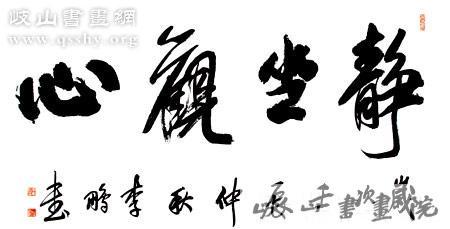 岐山書畫網
www.qsshy.org
静坐觀心
歲次壬辰仲秋李鵬書
岐山書畫院